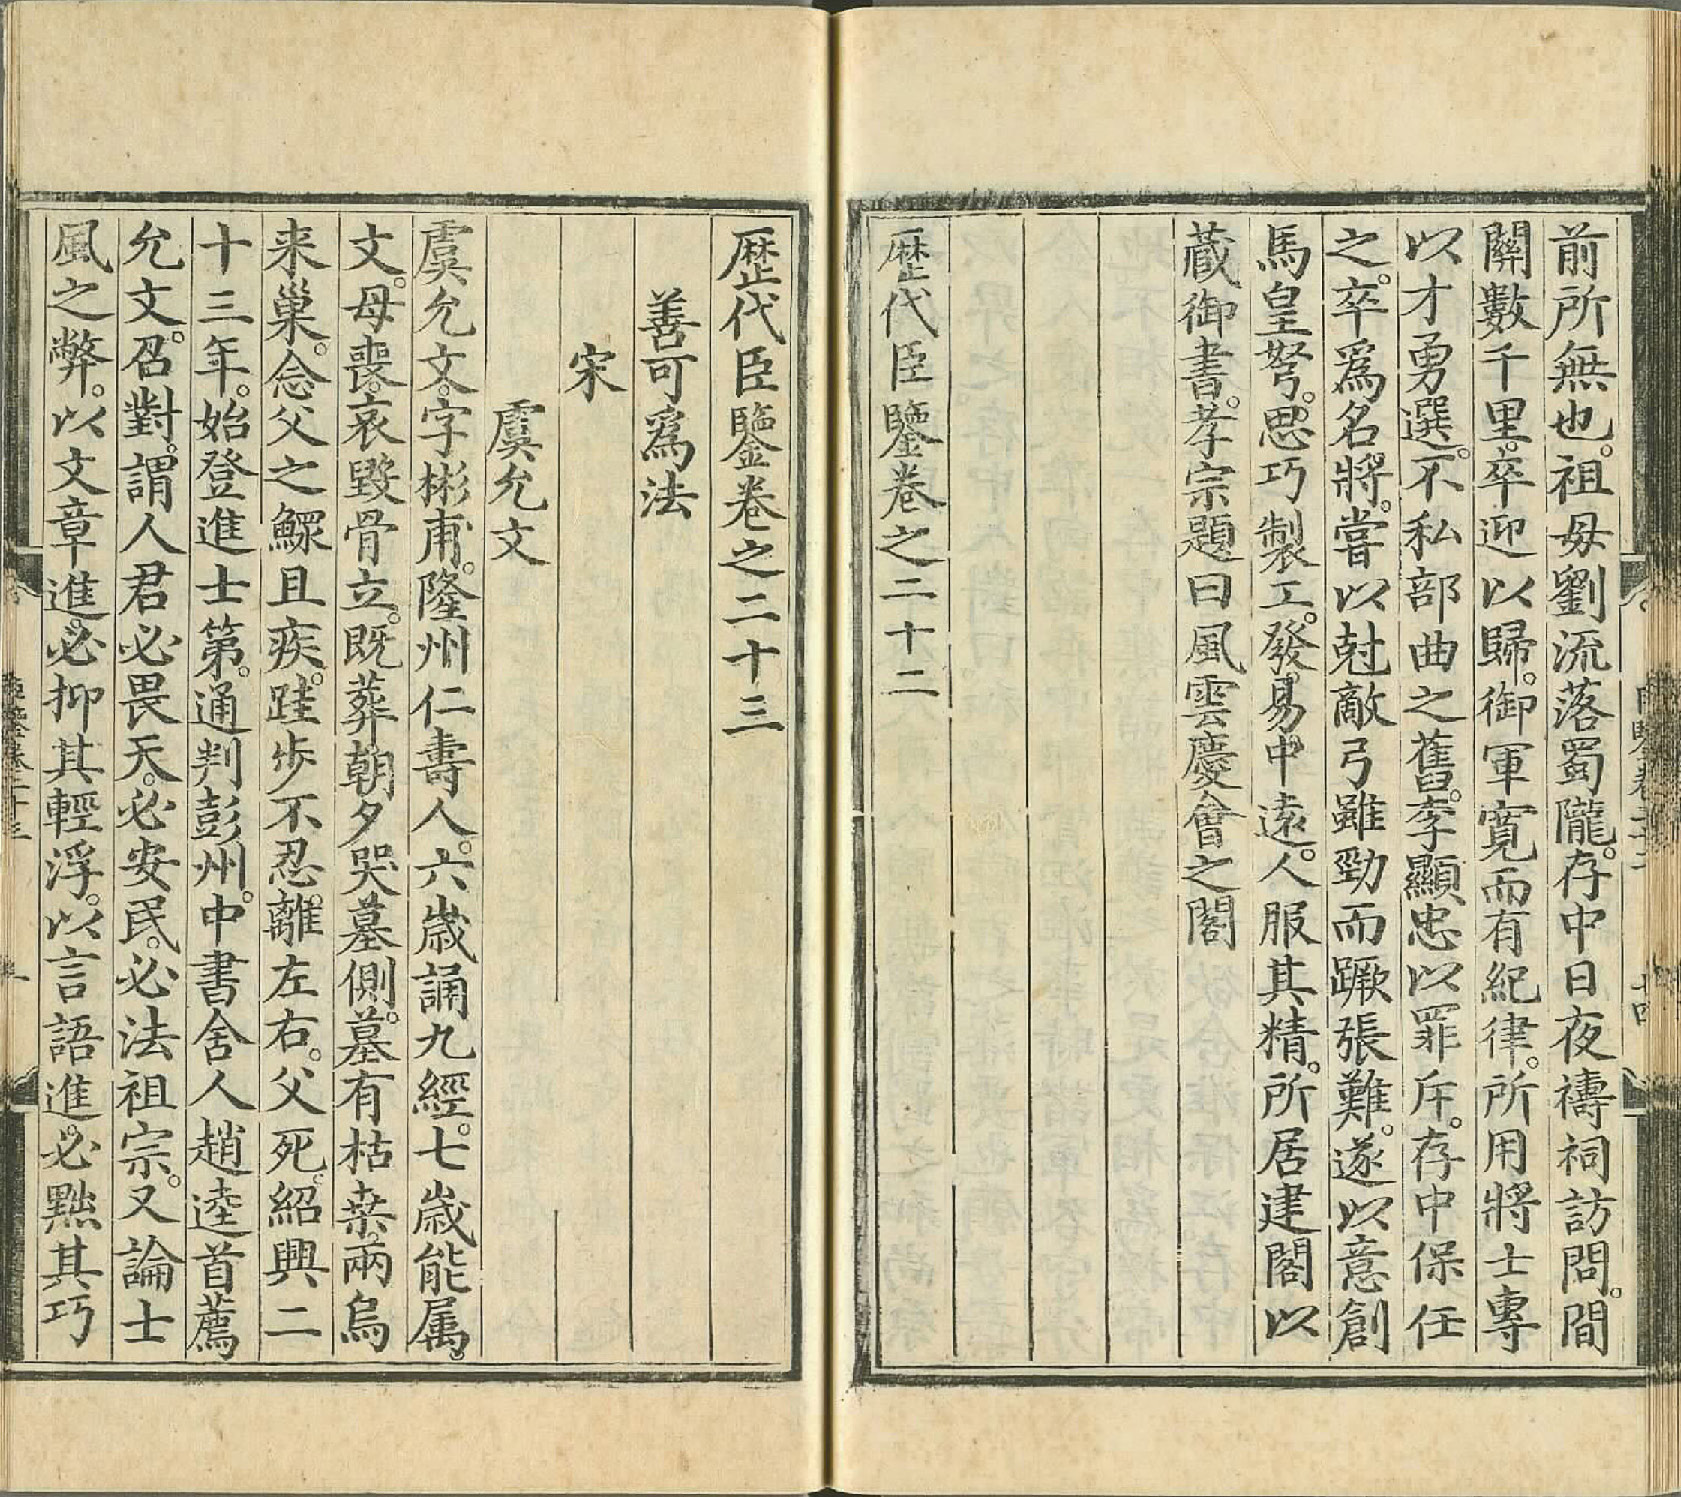 前所無也。祖母劉流落蜀隴。存中日夜禱祠訪問。間
關數千里。卒迎以歸。御軍寬而有紀律。所用將士專
以才勇選。不私部曲之舊。李顯忠以罪斥。存中保任
之。卒爲名將。嘗以尅敵弓雖勁而蹶張難。遂以意創
馬皇弩。思巧製工。發易中遠。人服其精。所居建閣以
藏御書。孝宗題曰風雲慶會之閣
歷代臣鑒卷之二十二
歷代臣鑒卷之二十三
善可爲法
宋
虞允文
虞允文。字彬甫。隆州仁壽人。六歲誦九經。七歲能属。
文。母喪。哀毀骨立。既葬。朝夕哭墓側。墓有枯桒。兩烏
来巢。念父之鰥且疾。跬步不忍離左右。父死。紹興二
十三年。始登進士第。通判彭州。中書舍人趙逵首薦
允文。召對。謂人君必畏天。必安民。必法祖宗。又論士
風之弊。以文章進。必抑其輕浮。以言語進。必黜其巧